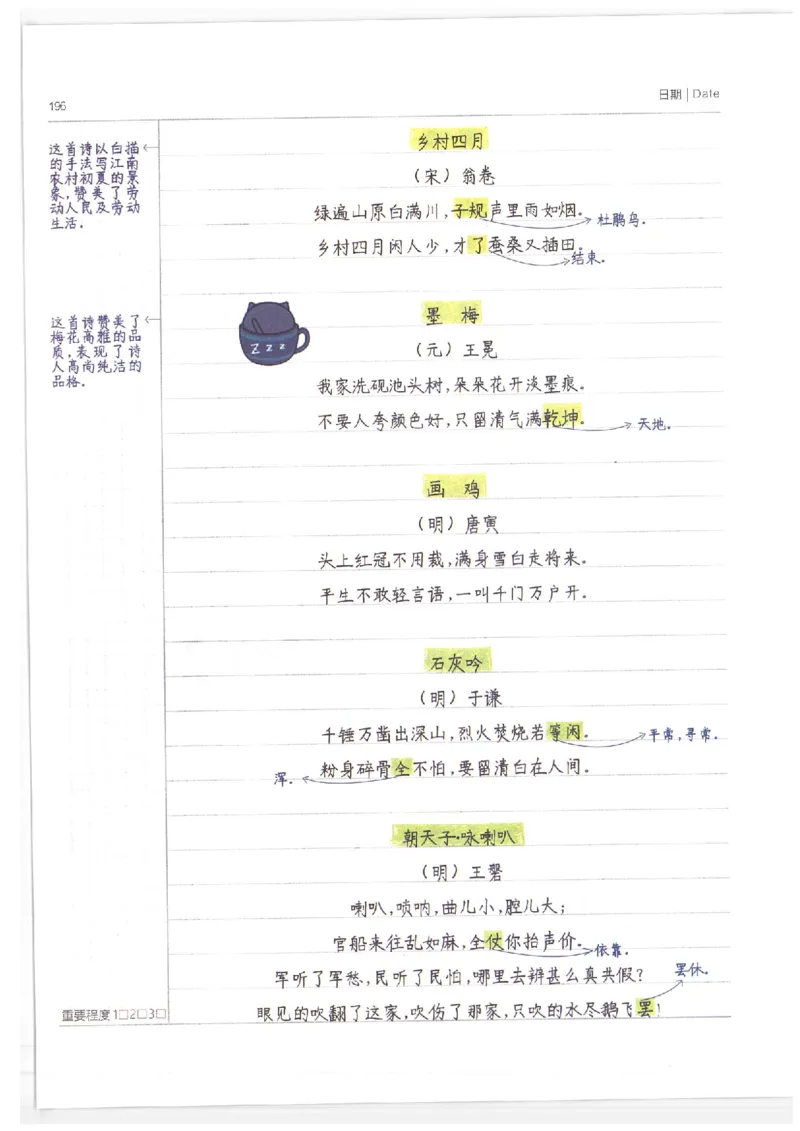 196
日期 | Date
这首诗以白描
的手法写江南
农村初夏的景
象,赞美了劳
动人民及劳动
生活.
乡村四月
(宋) 翁卷
绿遍山原白满川,子规声里雨如烟.
杜鹃鸟.
乡村四月闲人少,才了蚕桑又插田.
结束.
这首诗赞美了
梅花高雅的品
质,表现了诗
人高尚纯洁的
品格.
Z z z
墨 梅
(元) 王冕
我家洗砚池头树,朵朵花开淡墨痕.
不要人夸颜色好,只留清气满乾坤.
天地.
画 鸡
(明) 唐寅
头上红冠不用裁,满身雪白走将来.
平生不敢轻言语,一叫千门万户开.
石灰吟
(明) 于谦
千锤万凿出深山,烈火焚烧若等闲.
平常,寻常.
粉身碎骨全不怕,要留清白在人间.
浑.
朝天子·咏喇叭
(明) 王磬
喇叭,唢呐,曲儿小,腔儿大;
官船来往乱如麻,全仗你抬声价.
依靠.
军听了军愁,民听了民怕,哪里去辨甚么真共假?
罢休.
眼见的吹翻了这家,吹伤了那家,只吹的水尽鹅飞罢!
重要程度 1□2□3□